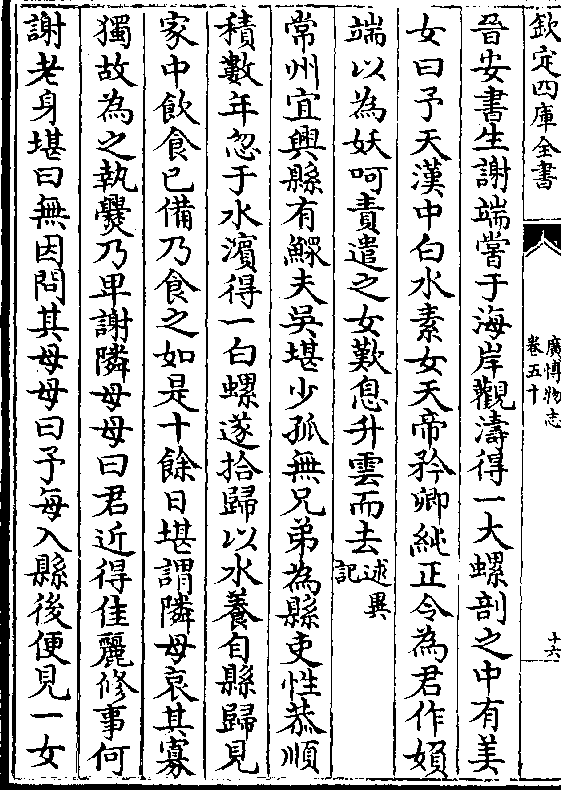 欽定四庫全書
廣博物志
卷五十
十六
晉安書生謝端嘗于海岸觀濤得一大螺剖之中有美
女曰予天漢中白水素女天帝矜卿純正令為君作婦
端以為妖呵責遣之女歎息升雲而去述異記
常州宜興縣有鰥夫吳堪少孤無兄弟為縣吏性恭順
積數年忽于水濵得一白螺遂拾歸以水養自縣歸見
家中飲食已備乃食之如是十餘日堪謂隣母哀其寡
獨故為之執爨乃卑謝隣母母曰君近得佳麗修事何
謝老身堪曰無因問其母母曰予每入縣後便見一女